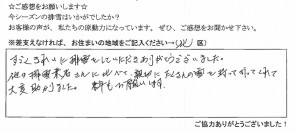 ☆ご感想をお願いします☆
今シーズンの排雪はいかがでしたか?
お客様の声が、私たちの原動力になっています。ぜひ、ご感想をお聞かせ下さい。
※差支えなければ、お住まいの地域をご記入ください→( 区)
すごくきれいに排雪をしていただきありがとうございました。
他の排雪業者さんに比べて、親切にたくさんの雪を持って行ってくれて
大変助かりました。 来年もお願いします。
ご協力ありがとうございました!